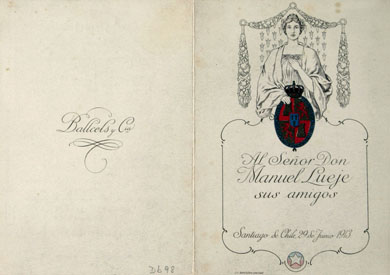 Ballcels y Co
Al Señor Don
Manuel Lueje
sus amigos
Santiago de Chile, 29 de Junio 1913
Db 98